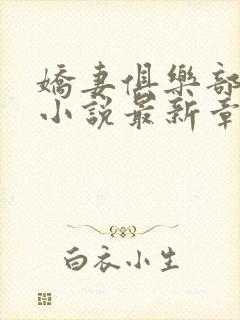 嬌妻俱樂部
小說最新章
白衣小生